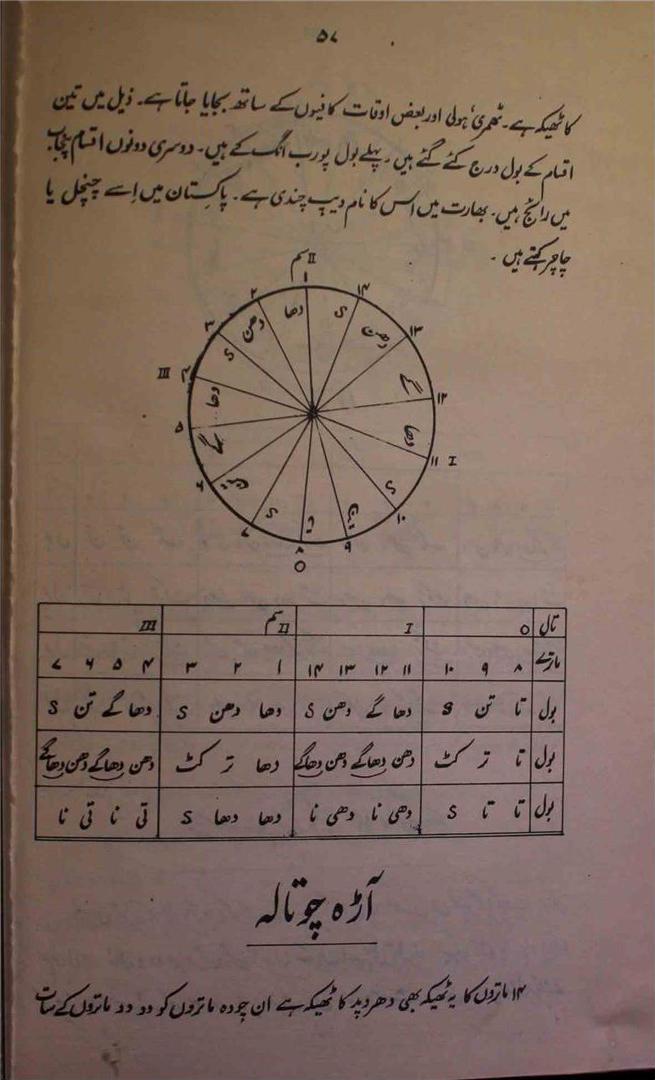 ۵۷
کا ٹھیکہ ہے۔ ٹھمری، ہولی اور بعض اوقات کافیوں کے ساتھ بجایا جاتا ہے۔ ذیل میں تین
اقسام کے بول درج کئے گئے ہیں۔ پہلے بول پورب انگ کے ہیں۔ دوسری دونوں اقسام پنجاب
میں رائج ہیں۔ بھارت میں اس کا نام دیپ چندی ہے۔ پاکستان میں اِسے چنچل یا
چاچر کہتے ہیں۔
II سم
۱ ۲ ۳ ۴ III ۵ ۶ ۷ ۸ O ۹ ۱۰ ۱۱ I ۱۲ ۱۳ ۱۴
دھا دھن S دھا گے تن S تا تن S دھا گے دھن S
تال O I II سم III
ماترے ۸ ۹ ۱۰ ۱۱ ۱۲ ۱۳ ۱۴ ۱ ۲ ۳ ۴ ۵ ۶ ۷
بول تا تن S دھا گے دھن S دھا دھن S دھا گے تن S
بول تا تر کٹ دھن دھاگے دھن دھاگے دھا تر کٹ دھن دھاگے دھن دھاگے
بول تا تا S دھی نا دھی نا دھا دھا S تی نا تی نا
آڑہ چوتالہ
۱۴ ماتروں کا یہ ٹھیکہ بھی دھرپد کا ٹھیکہ ہے ان چودہ ماتروں کو دو دو ماتروں کے سات